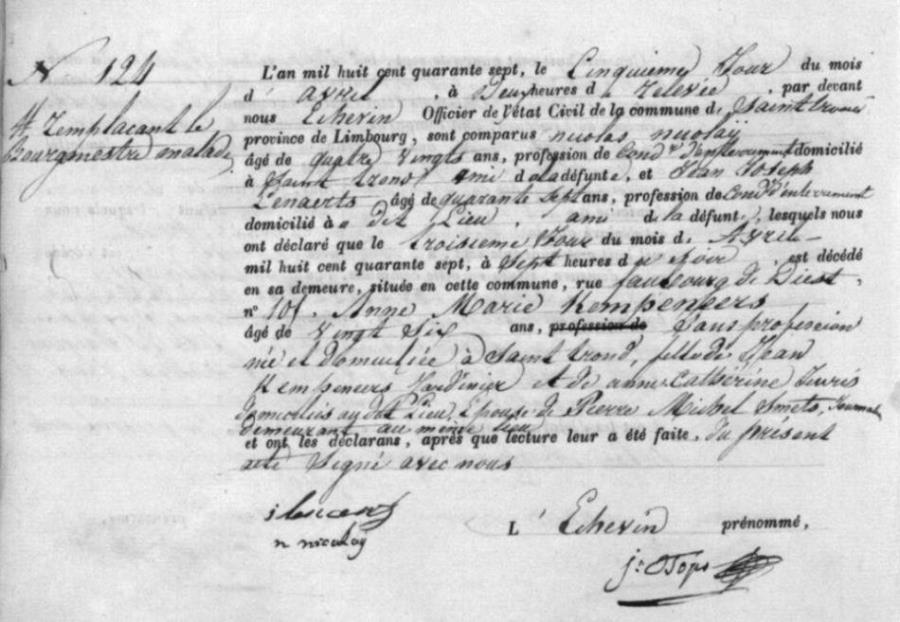 N 124
L'an mil huit cent quarante sept, le Cinquieme Jour du mois
d' avril, à Deux heures d relevée, par devant
nous Echevin Officier de l'état Civil de la commune d. Saint trond
# remplacant le
Bourgmestre malade
province de Limbourg, sont comparus nicolas nicolaÿ
âgé de quatre vingts ans, profession de Cond.r d'enterrement domicilié
à Saint trond ami d e la défunte, et Jean Joseph
Lenaerts âgé de quarante sept ans, profession de Cond.r d'enterrement
domicilié à dit Lieu, ami d. la défunte, lesquels nous
ont déclaré que le troisieme Jour du mois d. Avril
mil huit cent quarante sept, à Sept heures d u soir, est décédé
en sa demeure, située en cette commune, rue faubourg de Diest
n° 101. Anne Marie Kempeneers
âgé de Vingt Six ans, profession de Sans profession
née et domiciliée à Saint trond, fille de Jean
Kempeneers Jardinier et de anne Catherine
domiciliés au dit Lieu, Epouse de Pierre Michel Smets,
demeurant au meme lieu
et ont les déclarans, après que lecture leur a été faite, du present
acte Signé avec nous
n nicolaÿ
L' Echevin prénommé,